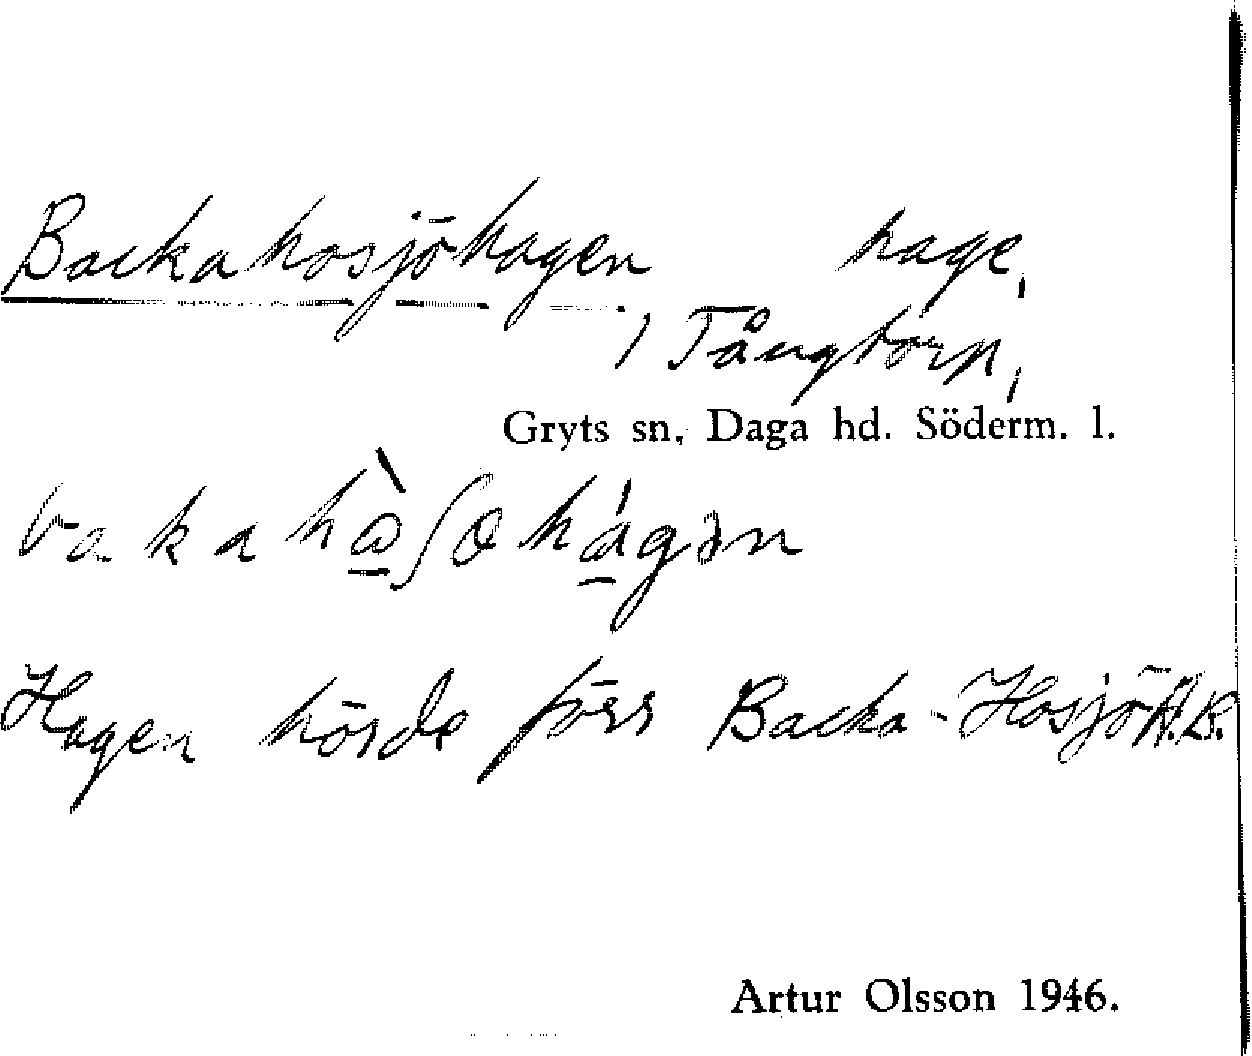 Backahosjöhagen hage,
, Tångtorp,
Gryts sn, Daga hd. Söderm. l.
bakahὰʃøhágən
Hagen hörde förr Backa-Hosjö H.B.
Artur Olsson 1946.